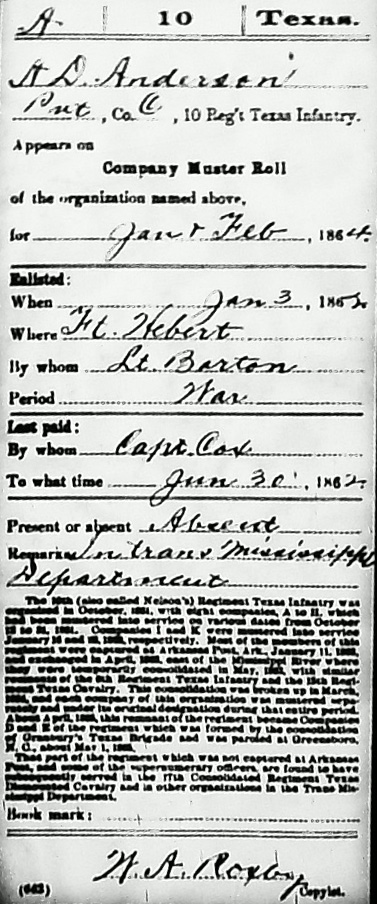 A | 10 | Texas.
A D. Anderson
Pvt, Co. C, 10 Reg't Texas Infantry.
Appears on
Company Muster Roll
of the organization named above,
for Jan & Feb, 1864.
Enlisted:
When Jan 3, 1862
Where Ft. Hebert
By whom Lt. Barton
Period War
Last paid:
By whom Capt. Cox
To what time Jun 30, 1862
Present or absent Absent
Remarks: In trans Mississippi
Department
The 10th (also called Nelson's) Regiment Texas Infantry was
organized in October, 1861, with eight companies, A to H, which
had been mustered into service on various dates from October
to 31, 1861. Companies I and K were mustered into service
January 1862, respectively. Most of the members of this
regiment were captured at Arkansas Post, Ark., January 11, 1863,
and exchanged in April, 1863, east of the Mississippi River where
they were temporarily consolidated in May, 1863, with similar
remnants of the 6th Regiment Texas Infantry and the 15th Regi-
ment Texas Cavalry. This consolidation was broken up in March,
1864, and each company of this organization was mustered sepa-
rately and under its original designation during that entire period.
About April, 1865, this remnant of the regiment became Companies
D and E of the regiment which was formed by the consolidation
of Granbury's Texas Brigade and was paroled at Greensboro,
N. C., about May 1, 1865.
That part of the regiment which was not captured at Arkansas
Post, and some of the supernumerary officers, are found to have
subsequently served in the 17th Consolidated Regiment Texas
Dismounted Cavalry and in other organizations in the Trans-Mis-
sissippi Department.
Book mark:
W. A. Roxby
(642) Copyist.